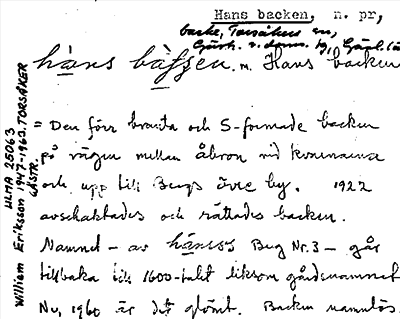 Hans backen, n. pr,
backe, Torsåkers sn,
Gästr. o. doms. hd, Gävl. lä
hàns bàkken. m. Hans backen
= Den förr branta och S-formade backen
på vägen mellan åbron vid kvarnarna
och upp till Bergs övre by. 1922
avschaktades och rättades backen.
Namnet - av hànses Berg Nr. 3 - går
tillbaka till 1600-talet liksom gårdsnamnet
Nu, 1960 är det glömt. Backen namnlös.
ULMA 25063
William Eriksson 1947-1963. TORSÅKER
GÄSTR.